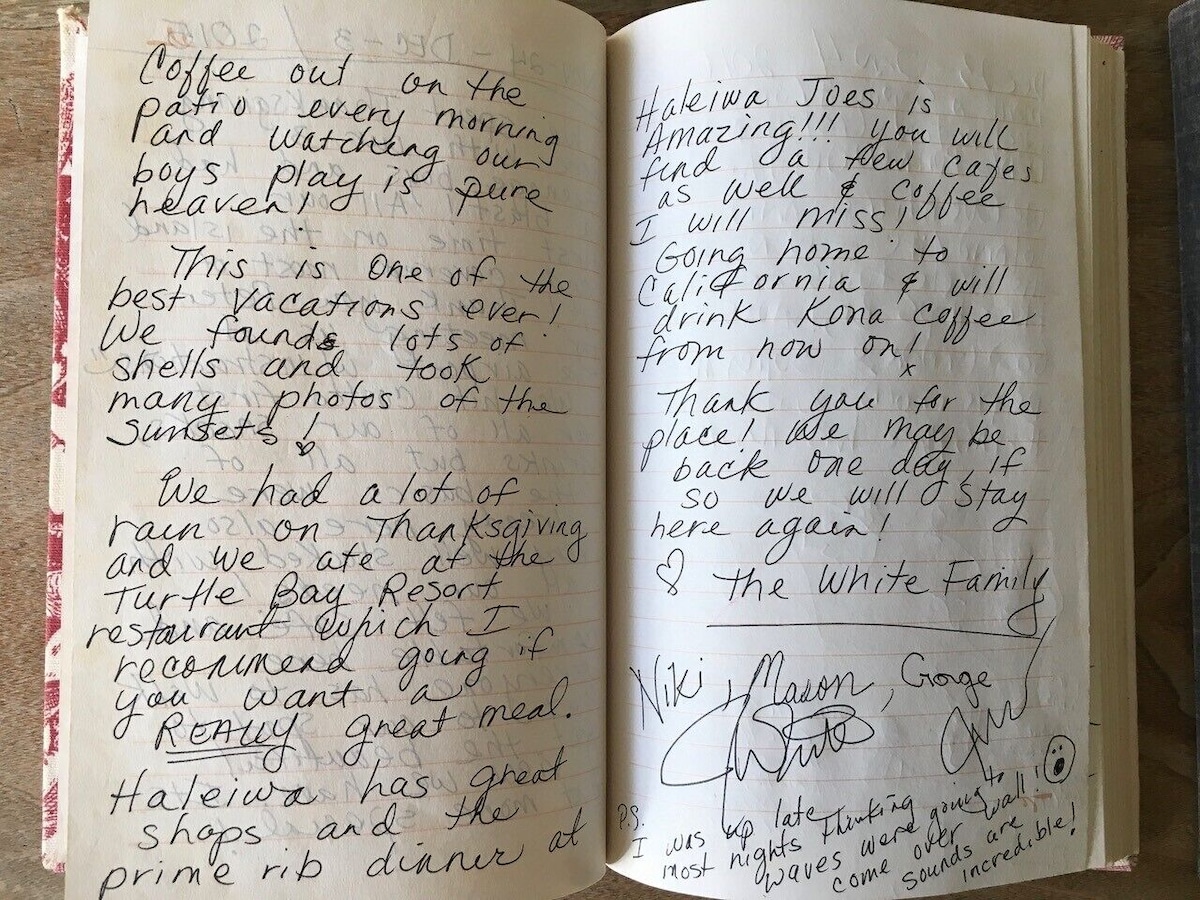 Coffee out on the
patio every morning
and watching our
boys play is pure
heaven!
This is one of the
best vacations ever!
We founds lots of
shells and took
many photos of the
sunsets!
We had a lot of
rain on Thanksgiving
and we ate at the
Turtle Bay Resort
restaurant which I
recommend going if
you want a
REALLY great meal.
Haleiwa has great
shops and the
prime rib dinner at
Haleiwa Joes is
Amazing!!! you will
find a few cafes
as well & coffee
I will miss!
Going home to
California & will
drink Kona coffee
from now on!
Thank you for the
place! We may be
back one day, if
so we will stay
here again!
♡ The White Family
Niki, Mason, Gorge
White
P.S.
I was up late
most nights thinking
waves were going to
come over wall!
sounds are
incredible!
DEC-3 / 2015